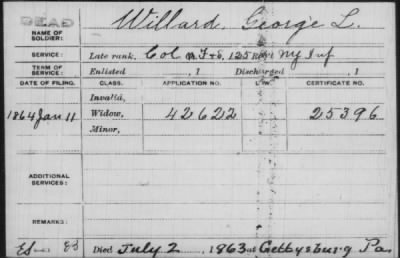 DEAD
NAME OF SOLDIER: Willard, George L.
SERVICE: Late rank, Col F+S, 125 Reg't NY Inf
TERM OF SERVICE: Enlisted , 1 Discharged , 1
DATE OF FILING. CLASS. APPLICATION NO. LAW. CERTIFICATE NO.
Invalid,
1864 Jan 11 Widow, 42622 25396
Minor,
ADDITIONAL SERVICES:
REMARKS:
Died July 2, 1863 at Gettysburg Pa